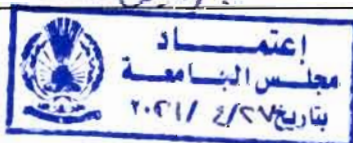 إعتمـــــاد
مجلـس الجـامعـة
بتاريخ ٢٠٢١/٤/٢٧